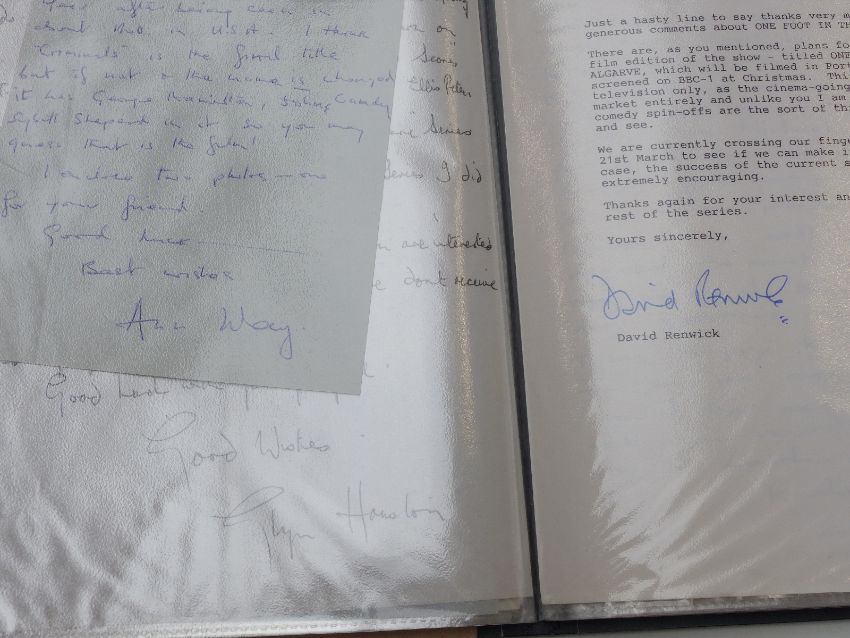 year after being seen in
about this in U.S.A. I think
"Criminals" is the final title
but if not & the name is changed
it has George Hamilton, Candy
Sybill Sheperd in it so you may
guess that is the film!
I enclose two photos - one
for your friend
Good luck
Best wishes
Ann Way.
on
Series
Ellis Peters
Series
Series I did
are interested
don't receive
Good luck
Good Wishes
Glyn Houston
Just a hasty line to say thanks very m
generous comments about ONE FOOT IN TH
There are, as you mentioned, plans fo
film edition of the show - titled ONE
ALGARVE, which will be filmed in Por
screened on BBC-1 at Christmas. Thi
television only, as the cinema-going
market entirely and unlike you I am
comedy spin-offs are the sort of thi
and see.
We are currently crossing our fing
21st March to see if we can make i
case, the success of the current s
extremely encouraging.
Thanks again for your interest an
rest of the series.
Yours sincerely,
David Renwick
David Renwick